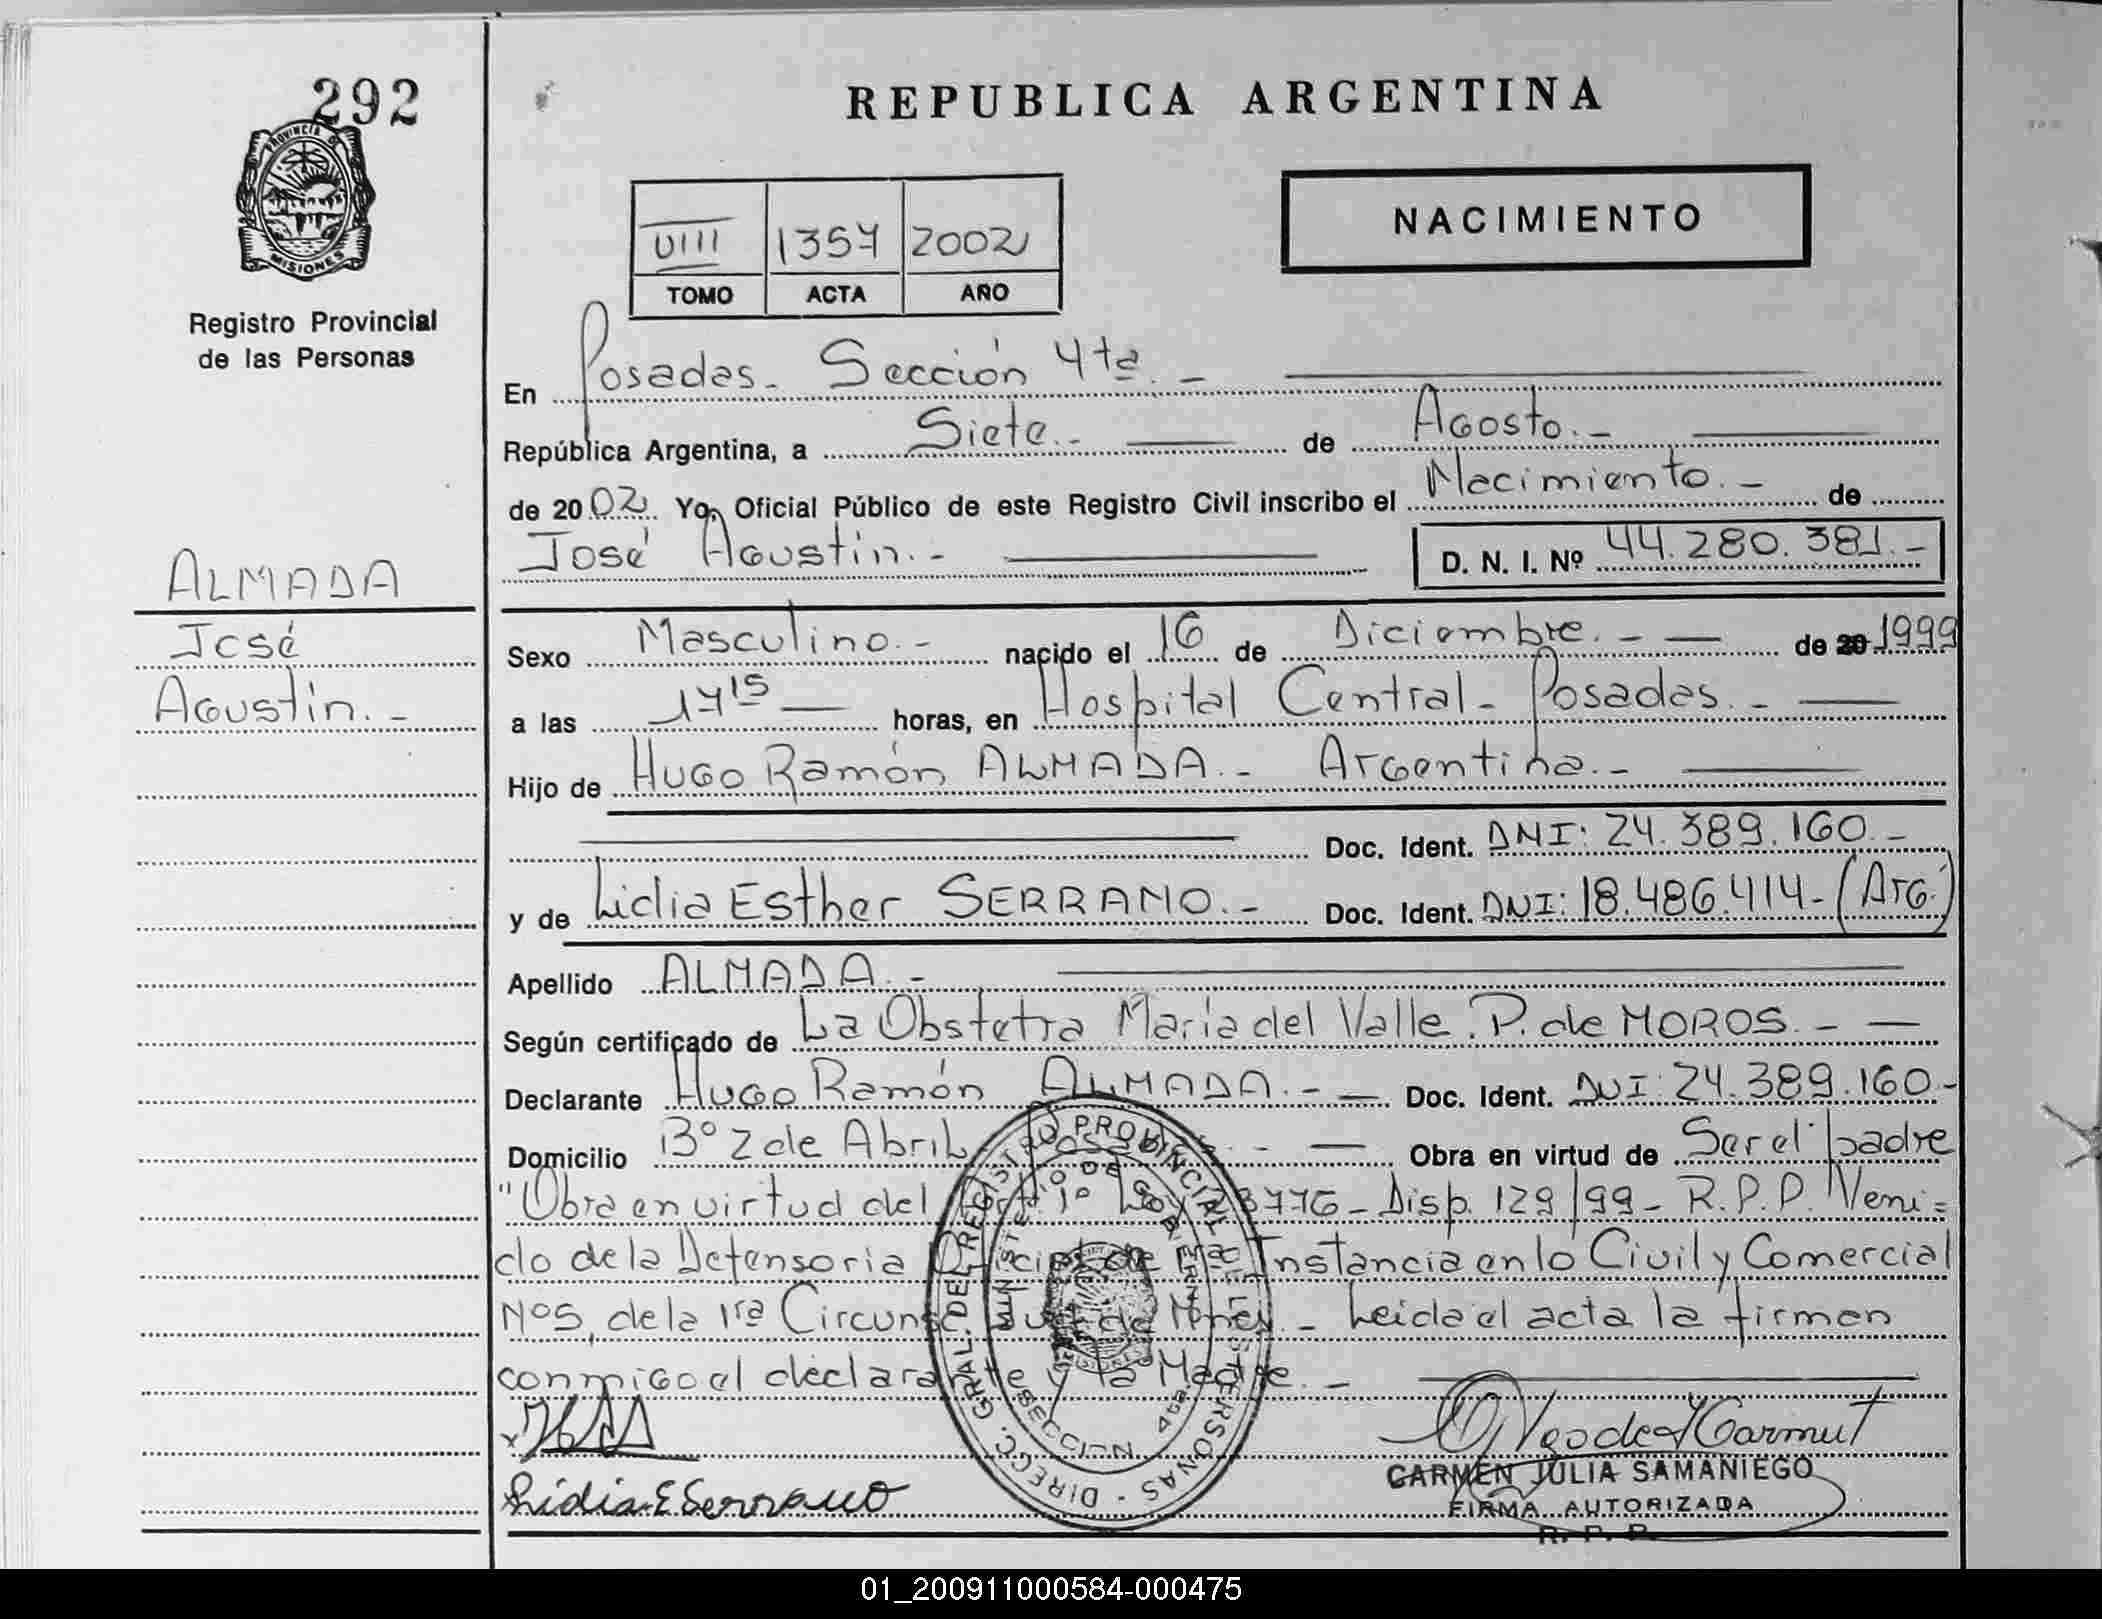 292
REPUBLICA ARGENTINA
PROVINCIA DE
MISIONES
Registro Provincial
de las Personas
VIII 1357 2002
TOMO ACTA AÑO
NACIMIENTO
En Posadas. Sección 4ta. -
República Argentina, a Siete.- de Agosto.-
de 2002. Yo, Oficial Público de este Registro Civil inscribo el Nacimiento.- de
José Agustín.- D. N. I. Nº 44.280.381.-
ALMADA
José
Agustín.-
Sexo Masculino.- nacido el 16 de Diciembre.- de 20 1999
a las 17 15 horas, en Hospital Central - Posadas.-
Hijo de Hugo Ramón ALMADA.- Argentina.-
Doc. Ident. DNI: 24.389.160.-
y de Lidia Esther SERRANO.- Doc. Ident. DNI: 18.486.414-(Arg.)
Apellido ALMADA.-
Según certificado de La Obstetra María del Valle. P. de MOROS.-
Declarante Hugo Ramón ALMADA.- Doc. Ident. DNI: 24.389.160-
Domicilio Bº 2 de Abril - Obra en virtud de Ser el padre
"Obra en virtud del 1º Ley 23776 - Disp. 129/99 - R.P.P. Veni=
do de la Defensoria Oficial de Instancia en lo Civil y Comercial
Nº5, de la 1ra Circunsc. Jud. de Mnes. - Leida el acta la firman
conmigo el declarante y la Madre.-
Lidia E Serrano
CARMEN JULIA SAMANIEGO
FIRMA AUTORIZADA
R. P. P.
DIREC. GRAL. DEL REGISTRO PROVINCIAL DE LAS PERSONAS
MINISTERIO DE GOBIERNO
SECCION 4ta
01_200911000584-000475